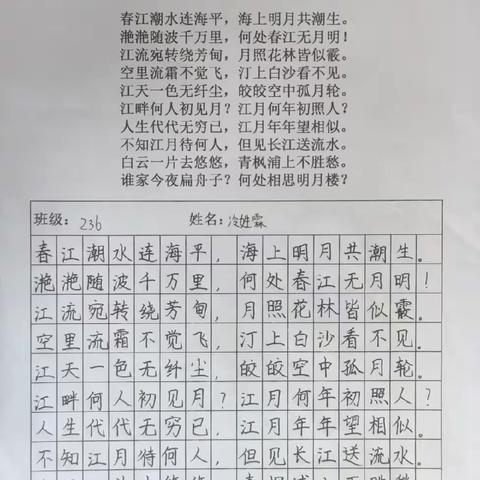 春江潮水连海平，海上明月共潮生。
滟滟随波千万里，何处春江无月明！
江流宛转绕芳甸，月照花林皆似霰。
空里流霜不觉飞，汀上白沙看不见。
江天一色无纤尘，皎皎空中孤月轮。
江畔何人初见月？江月何年初照人？
人生代代无穷已，江月年年望相似。
不知江月待何人，但见长江送流水。
白云一片去悠悠，青枫浦上不胜愁。
谁家今夜扁舟子？何处相思明月楼？
班级：236 姓名：冷姓霖
春江潮水连海平，海上明月共潮生。
滟滟随波千万里，何处春江无月明！
江流宛转绕芳甸，月照花林皆似霰。
空里流霜不觉飞，汀上白沙看不见。
江天一色无纤尘，皎皎空中孤月轮。
江畔何人初见月？江月何年初照人？
人生代代无穷已，江月年年望相似。
不知江月待何人，但见长江送流水。